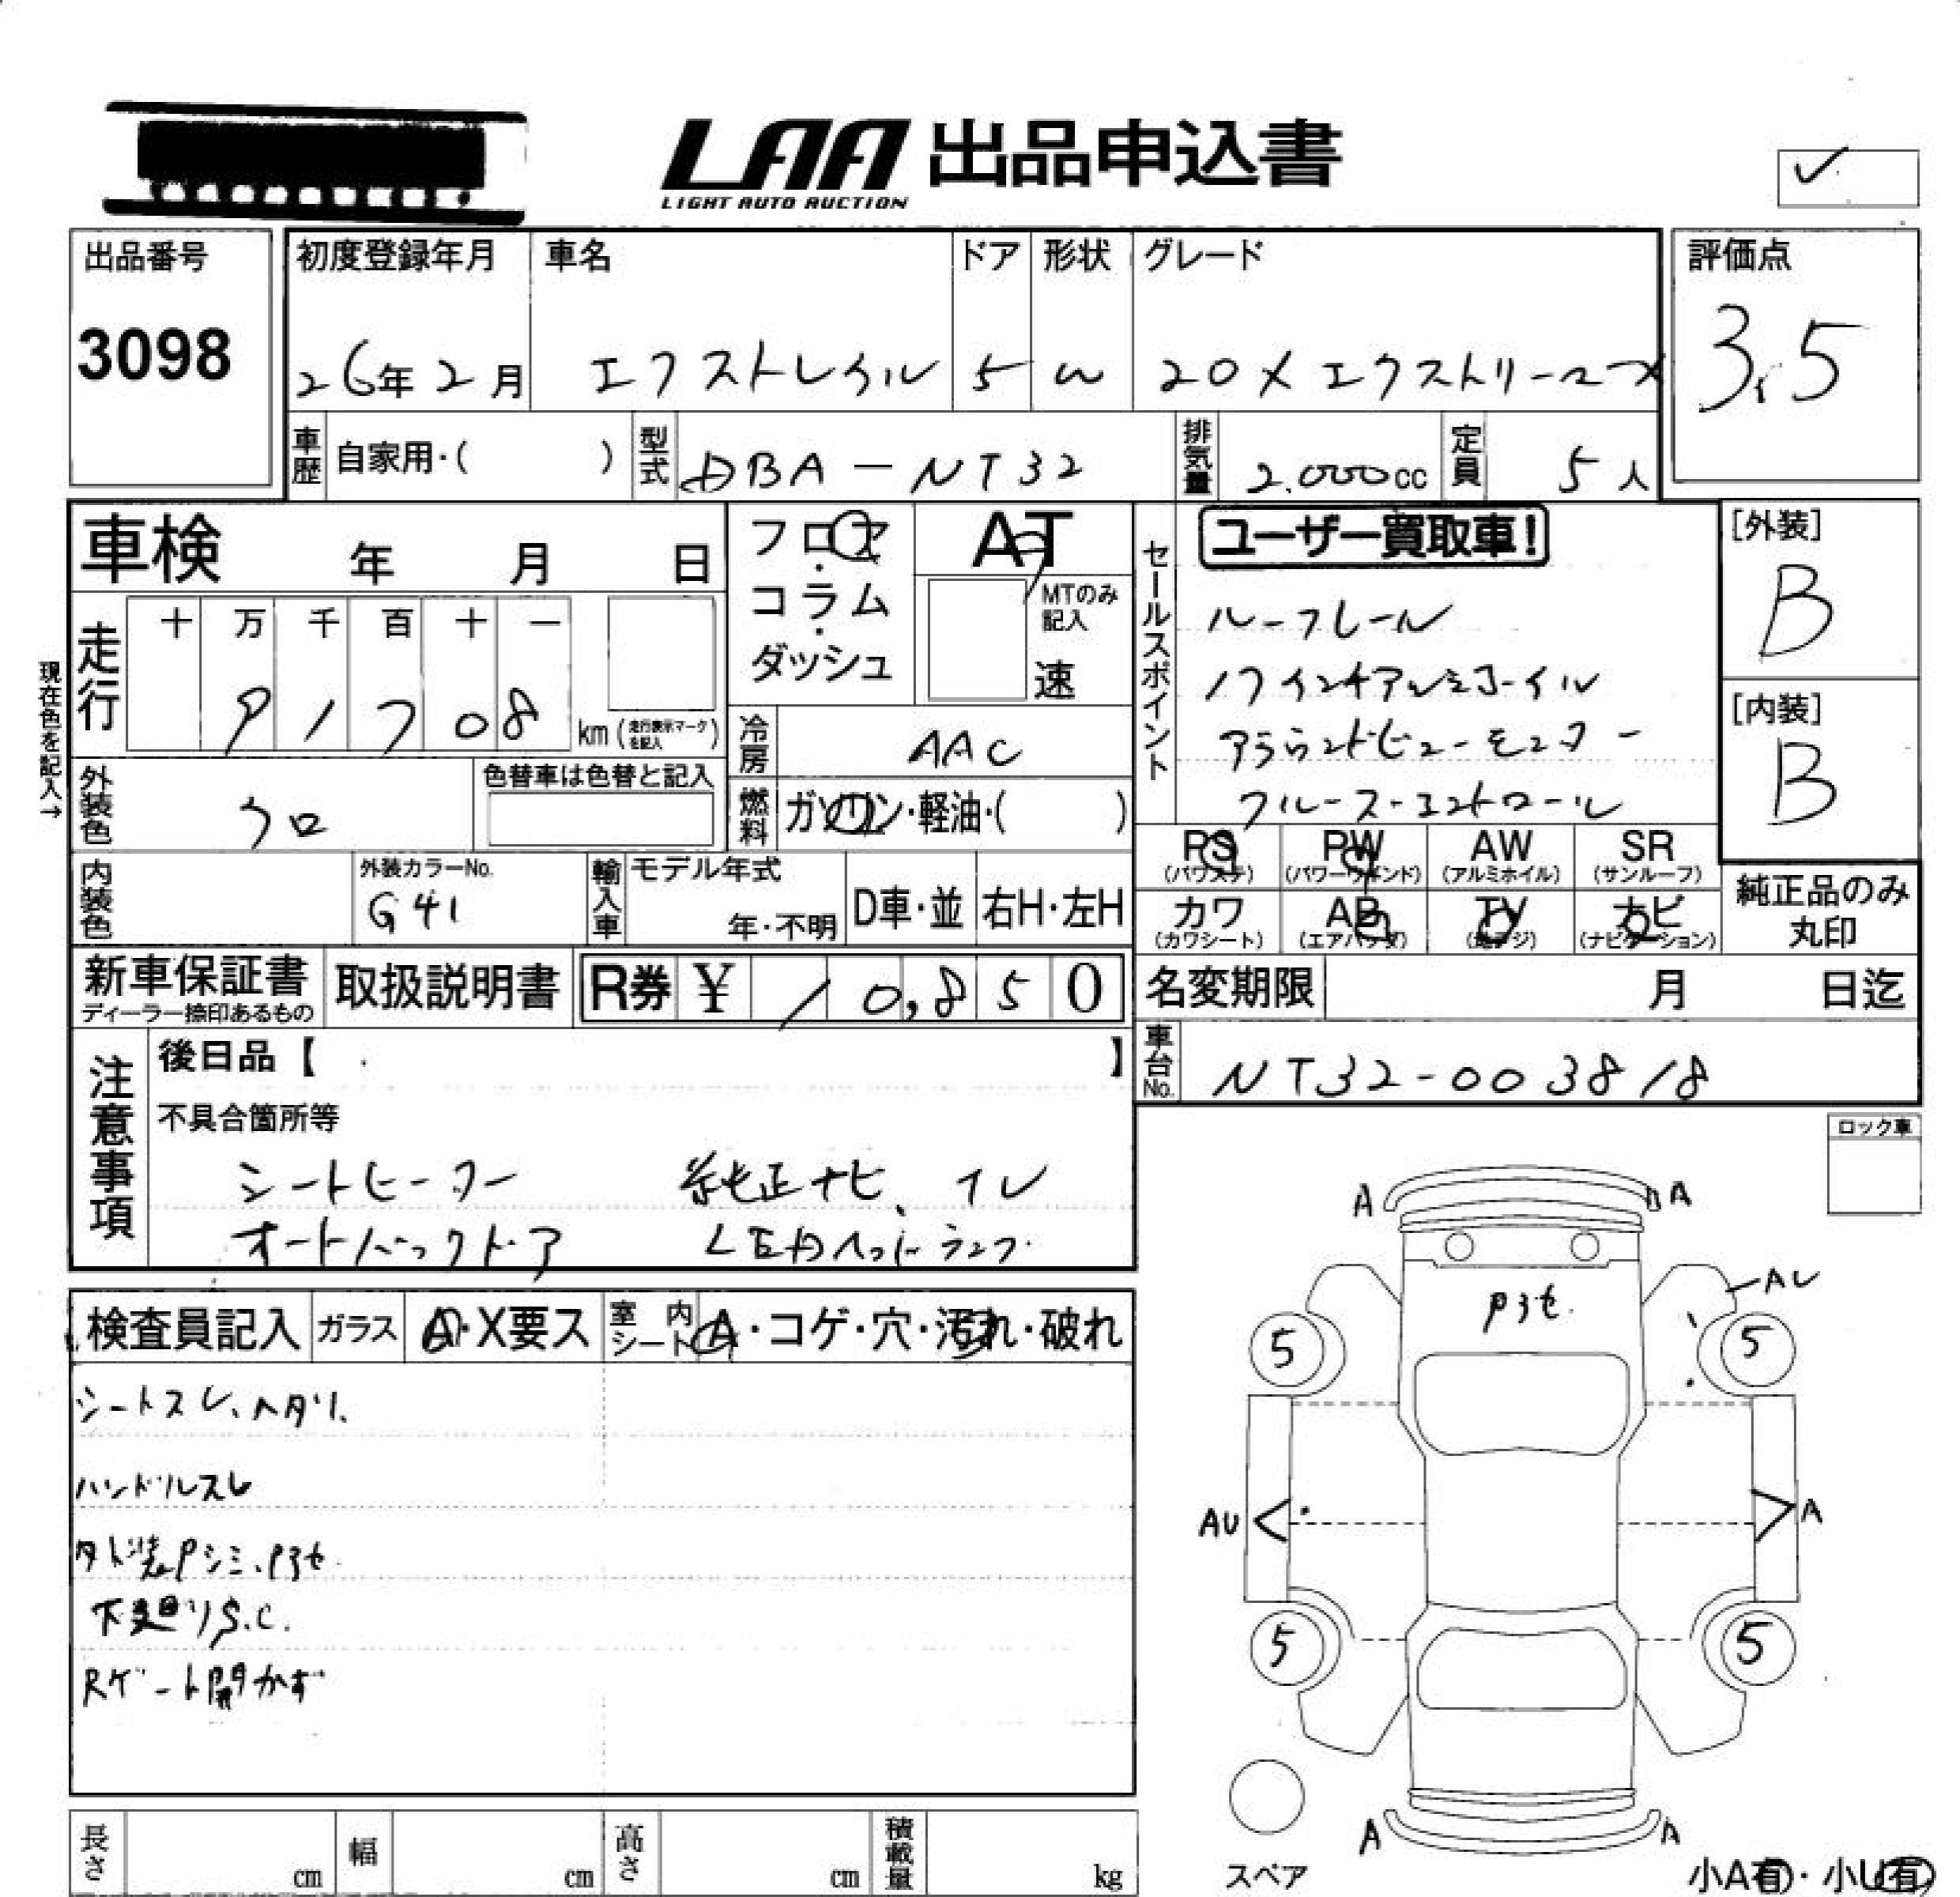 LAA 出品申込書
LIGHT AUTO AUCTION
出品番号
3098
初度登録年月
26年2月
車名
エクストレイル
ドア
5
形状
W
グレード
20X エクストリーマーX
評価点
3.5
車歴 自家用・( )
型式 DBA-NT32
排気量 2.000cc
定員 5人
車検 年 月 日
フロア・コラム・ダッシュ
AT
MTのみ記入
速
セールスポイント
ユーザー買取車!
ルーフレール
17インチアルミホイル
アラウンドビューモニター
クルーズ・コントロール
[外装]
B
[内装]
B
現在色を記入→
走行
十 万 千 百 十 一
9 1 7 0 8 km (走行表示マークを記入)
冷房 AAC
外装色 クロ
色替車は色替と記入
燃料 ガソリン・軽油・( )
内装色
外装カラーNo.
G41
輸入車
モデル年式
年・不明
D車・並
右H・左H
PS (パワステ)
PW (パワーウインド)
AW (アルミホイル)
SR (サンルーフ)
カワ (カワシート)
AB (エアバッグ)
TV (地デジ)
ナビ (ナビゲーション)
純正品のみ丸印
新車保証書
ディーラー捺印あるもの
取扱説明書
R券 ¥ 10,850
名変期限 月 日迄
車台No. NT32-003818
注意事項
後日品【 】
不具合箇所等
シートヒーター 純正ナビ、TV
オートバックドア LEDヘッドランプ
ロック車
検査員記入
ガラス A・X要ス
室内シート A・コゲ・穴・汚れ・破れ
シートスレ、ヘタリ、
ハンドルスレ
外装Pシミ、Pヨセ
下廻りS.C.
Rゲート開かず
A A
AU
Pヨセ.
5 5
AU A
5 5
A A
スペア
小A有・小U有
長さ cm
幅 cm
高さ cm
積載量 kg